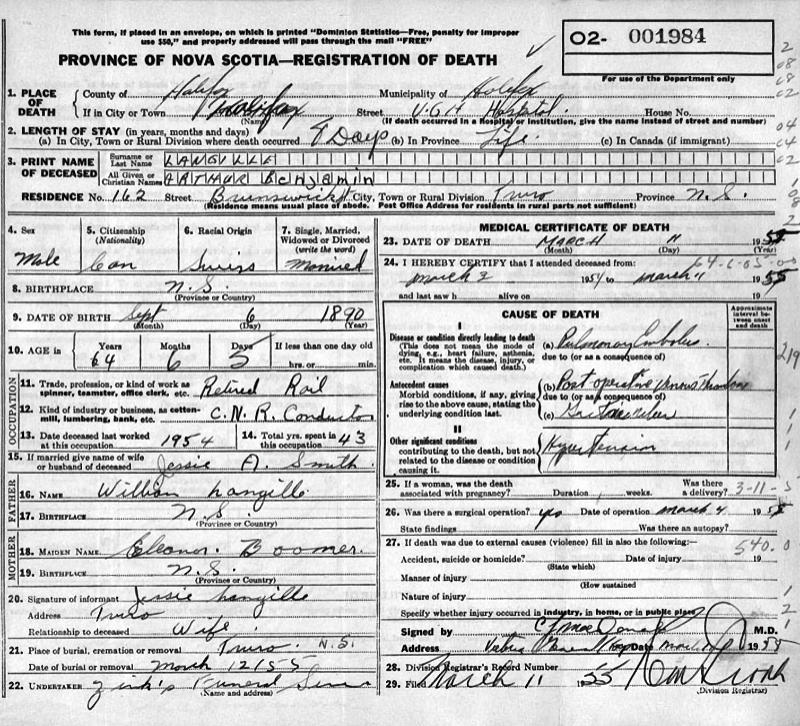 This form, if placed in an envelope, on which is printed "Dominion Statistics—Free, penalty for improper
use $50," and properly addressed will pass through the mail "FREE"
PROVINCE OF NOVA SCOTIA—REGISTRATION OF DEATH
02- 001984
For use of the Department only
1. PLACE OF DEATH County of Halifax Municipality of Halifax
If in City or Town Halifax Street V.G.H Hospital. House No.
(Name) (If death occurred in a Hospital or institution, give the name instead of street and number)
2. LENGTH OF STAY (in years, months and days)
(a) In City, Town or Rural Division where death occurred 9 Days (b) In Province Life. (c) In Canada (if immigrant)
3. PRINT NAME OF DECEASED Surname or Last Name LANGILLE
All Given or Christian Names ARTHUR Benjamin
RESIDENCE No. 162 Street Brunswick St City, Town or Rural Division Truro Province N.S.
(Residence means usual place of abode. Post Office Address for residents in rural parts not sufficient)
4. Sex 5. Citizenship (Nationality) 6. Racial Origin 7. Single, Married, Widowed or Divorced (write the word)
Male Can Swiss Married
8. BIRTHPLACE N.S.
(Province or Country)
9. DATE OF BIRTH Sept 6 1890
(Month) (Day) (Year)
10. AGE in Years Months Days If less than one day old
64 6 5 hrs. or min.
OCCUPATION
11. Trade, profession, or kind of work as spinner, teamster, office clerk, etc. Retired Rail
12. Kind of industry or business, as cotton-mill, lumbering, bank, etc. C.N.R. Conductor
13. Date deceased last worked at this occupation 1954 14. Total yrs. spent in this occupation 43
15. If married give name of wife or husband of deceased Jessie A. Smith.
FATHER
16. NAME William Langille
17. BIRTHPLACE N.S.
MOTHER
18. MAIDEN NAME Eleanor Boomer.
19. BIRTHPLACE N.S.
(Province or Country)
20. Signature of informant Jessie Langille
Address Truro
Relationship to deceased Wife
21. Place of burial, cremation or removal Truro N.S.
Date of burial or removal March 12/55
22. UNDERTAKER Zink's Funeral
(Name and address)
MEDICAL CERTIFICATE OF DEATH
23. DATE OF DEATH MARCH 11 1955
(Month) (Day) (Year)
24. I HEREBY CERTIFY that I attended deceased from:
March 2 195 to March 11 1955
and last saw h alive on 19
CAUSE OF DEATH
Approximate interval between onset and death
I
Disease or condition directly leading to death
(This does not mean the mode of dying, e.g., heart failure, asthenia, etc. It means the disease, injury, or complication which caused death.)
(a) Pulmonary Embolus
due to (or as a consequence of)
Antecedent causes
Morbid conditions, if any, giving rise to the above cause, stating the underlying condition last.
(b) Post-operative Venous
due to (or as a consequence of)
(c)
II
Other significant conditions
contributing to the death, but not related to the disease or condition causing it.
Hypertension
25. If a woman, was the death associated with pregnancy? Duration weeks. Was there a delivery?
3-11-5
26. Was there a surgical operation? yes Date of operation March 4 1955
State findings Was there an autopsy?
27. If death was due to external causes (violence) fill in also the following:—
540.0
Accident, suicide or homicide? Date of injury 19
(State which)
Manner of injury
(How sustained
Nature of injury
Specify whether injury occurred in industry, in home, or in public place
Signed by M.D.
Address Date 1955
28. Division Registrar's Record Number
29. Filed March 11 1955
(Division Registrar)